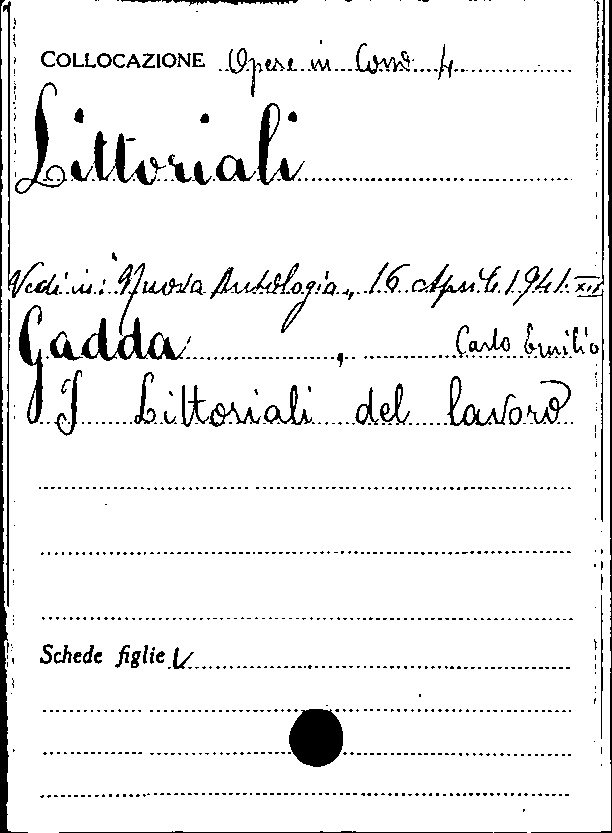 COLLOCAZIONE Opere in Corso 4
Littoriali
Vedi in: "Nuova Antologia„ 16 Aprile 1941. XIX
Gadda , Carlo Emilio
I Littoriali del lavoro
Schede figlie V